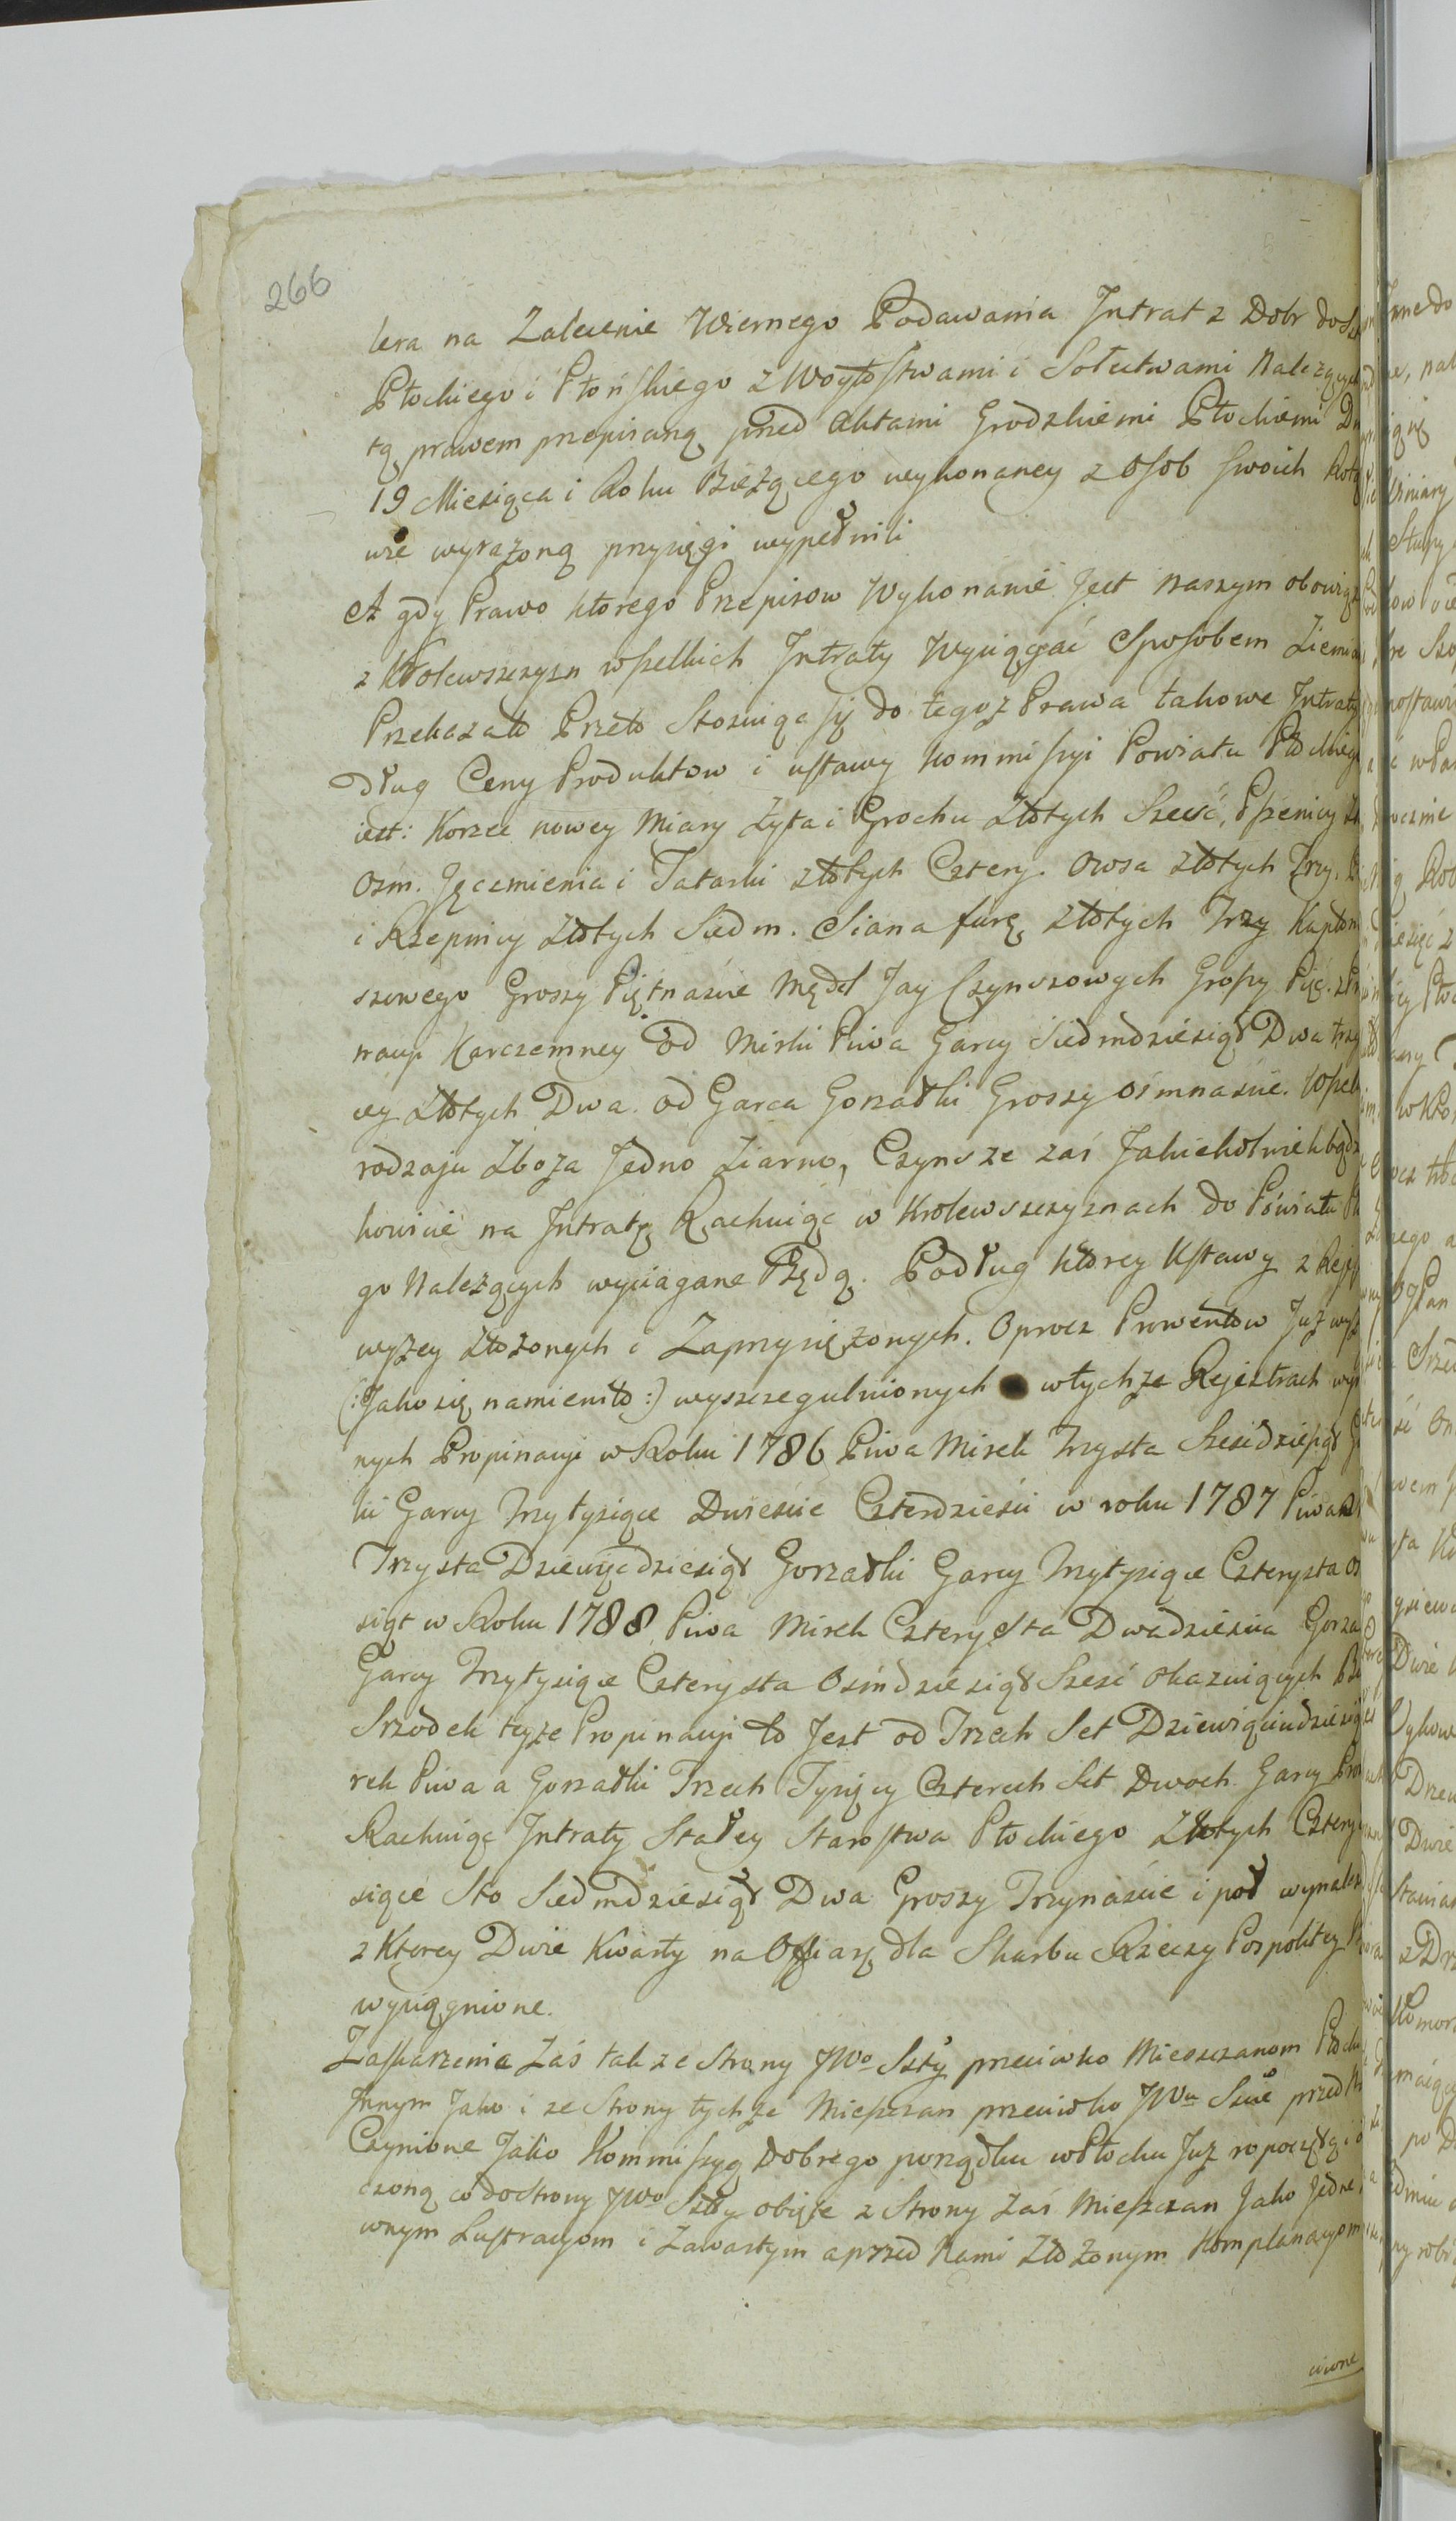 266
lera na Zalecenie Wiernego Podawania Jntrat z Dobr do
Płockiego i Płońskiego z Woytostwami i Sołectwami Należący
tą prawem przepisaną przed Aktami Grodzkiemi Płockiemi
19 Miesiąca i Roku Bieżącego wykonaney z Osob swoich Rotę
wie wyrażoną przysięgi wypełnili
A gdy Prawo ktorego Przepisow Wykonanie Jest naszym obowiąz
z Krolewszczyzn wszelkich Jntraty Wyciągać Sposobem Ziemia
Przekazało Przeto Stosuiąc się do tegoż Prawa takowe Jntraty
dług Ceny Produktow i ustawy Kommissyi Powiatu Płockieg
iest: Korzec nowey Miary Żyta i Grochu Złotych Sześć, Pszenicy
Ośm. Jęczmienia i Tatarki złotych Cztery. Owsa złotych Trzy.
i Rzepnicy Złotych Siedm. Siana furę złotych Trzy Kapłon
szowego Groszy Piętnaście Mędel Jay Czynszowych Groszy Pięć.
nacyi Karczemney od Mirki Piwa Garcy Siedmdziesiąt Dwa trzy
cey Złotych Dwa. od Garca Gorzałki Groszy Ośmnaście. Wszel
rodzaju Zboża Jedno Ziarno, Czynsze zaś Jakiekolwiekbądź
kowicie na Jntratę Rachuiąc w Krolewszczyznach do Powiatu
go Należących wyciągane Będą. Podług ktorey Ustawy z Rej
wyżey Złożonych i Zaprzysiężonych. Oprocz Prowentow Już wyż
(:Jako się namieniło:) wyszczegulnionych w tychże Rejestrach wy
nych Propinacyi w Roku 1786 Piwa Mirek Trzysta Sześćdziesiąt
ki Garcy Trzytysiące Dwieście Czterdzieści w roku 1787 Piwa
Trzysta Dziewięćdziesiąt Gorzałki Garcy Trzytysiące Czterysta
siąt w Roku 1788 Piwa Mirek Czterysta Dwadzieścia Gorza
Garcy Trzytysiące Czterysta Ośmdziesiąt Sześć okazuiących
Srzodek teyże Propinacyi to Jest od Trzech Set Dziewięciudziesiąt
rek Piwa a Gorzałki Trzech Tysięcy Czterech Set Dwoch Garcy
Rachuiąc Jntraty Stałey Starostwa Płockiego Złotych Cztery
siące Sto Siedmdziesiąt Dwa Groszy Trzynaście i poł wynalez
z Ktorey Dwie Kwarty na Ofiarę dla Skarbu Rzeczy Pospolitey
wyciągnione.
Zaskarzenia Zaś tak ze Strony JWo Stty przeciwko Mieszczanom
Jnnym Jako i ze Strony tychże Mieszczan przeciwko JWu Scie przed
Czynione Jako Kommissyą Dobrego porządku w Płocku Już ropoczętą i
czoną co do Strony JWo Stty obięte z Strony Zaś Mieszczan Jako Jedne
wnym Lustracyom i Zawartym a przed Nami Złożonym Komplanacyom
wione